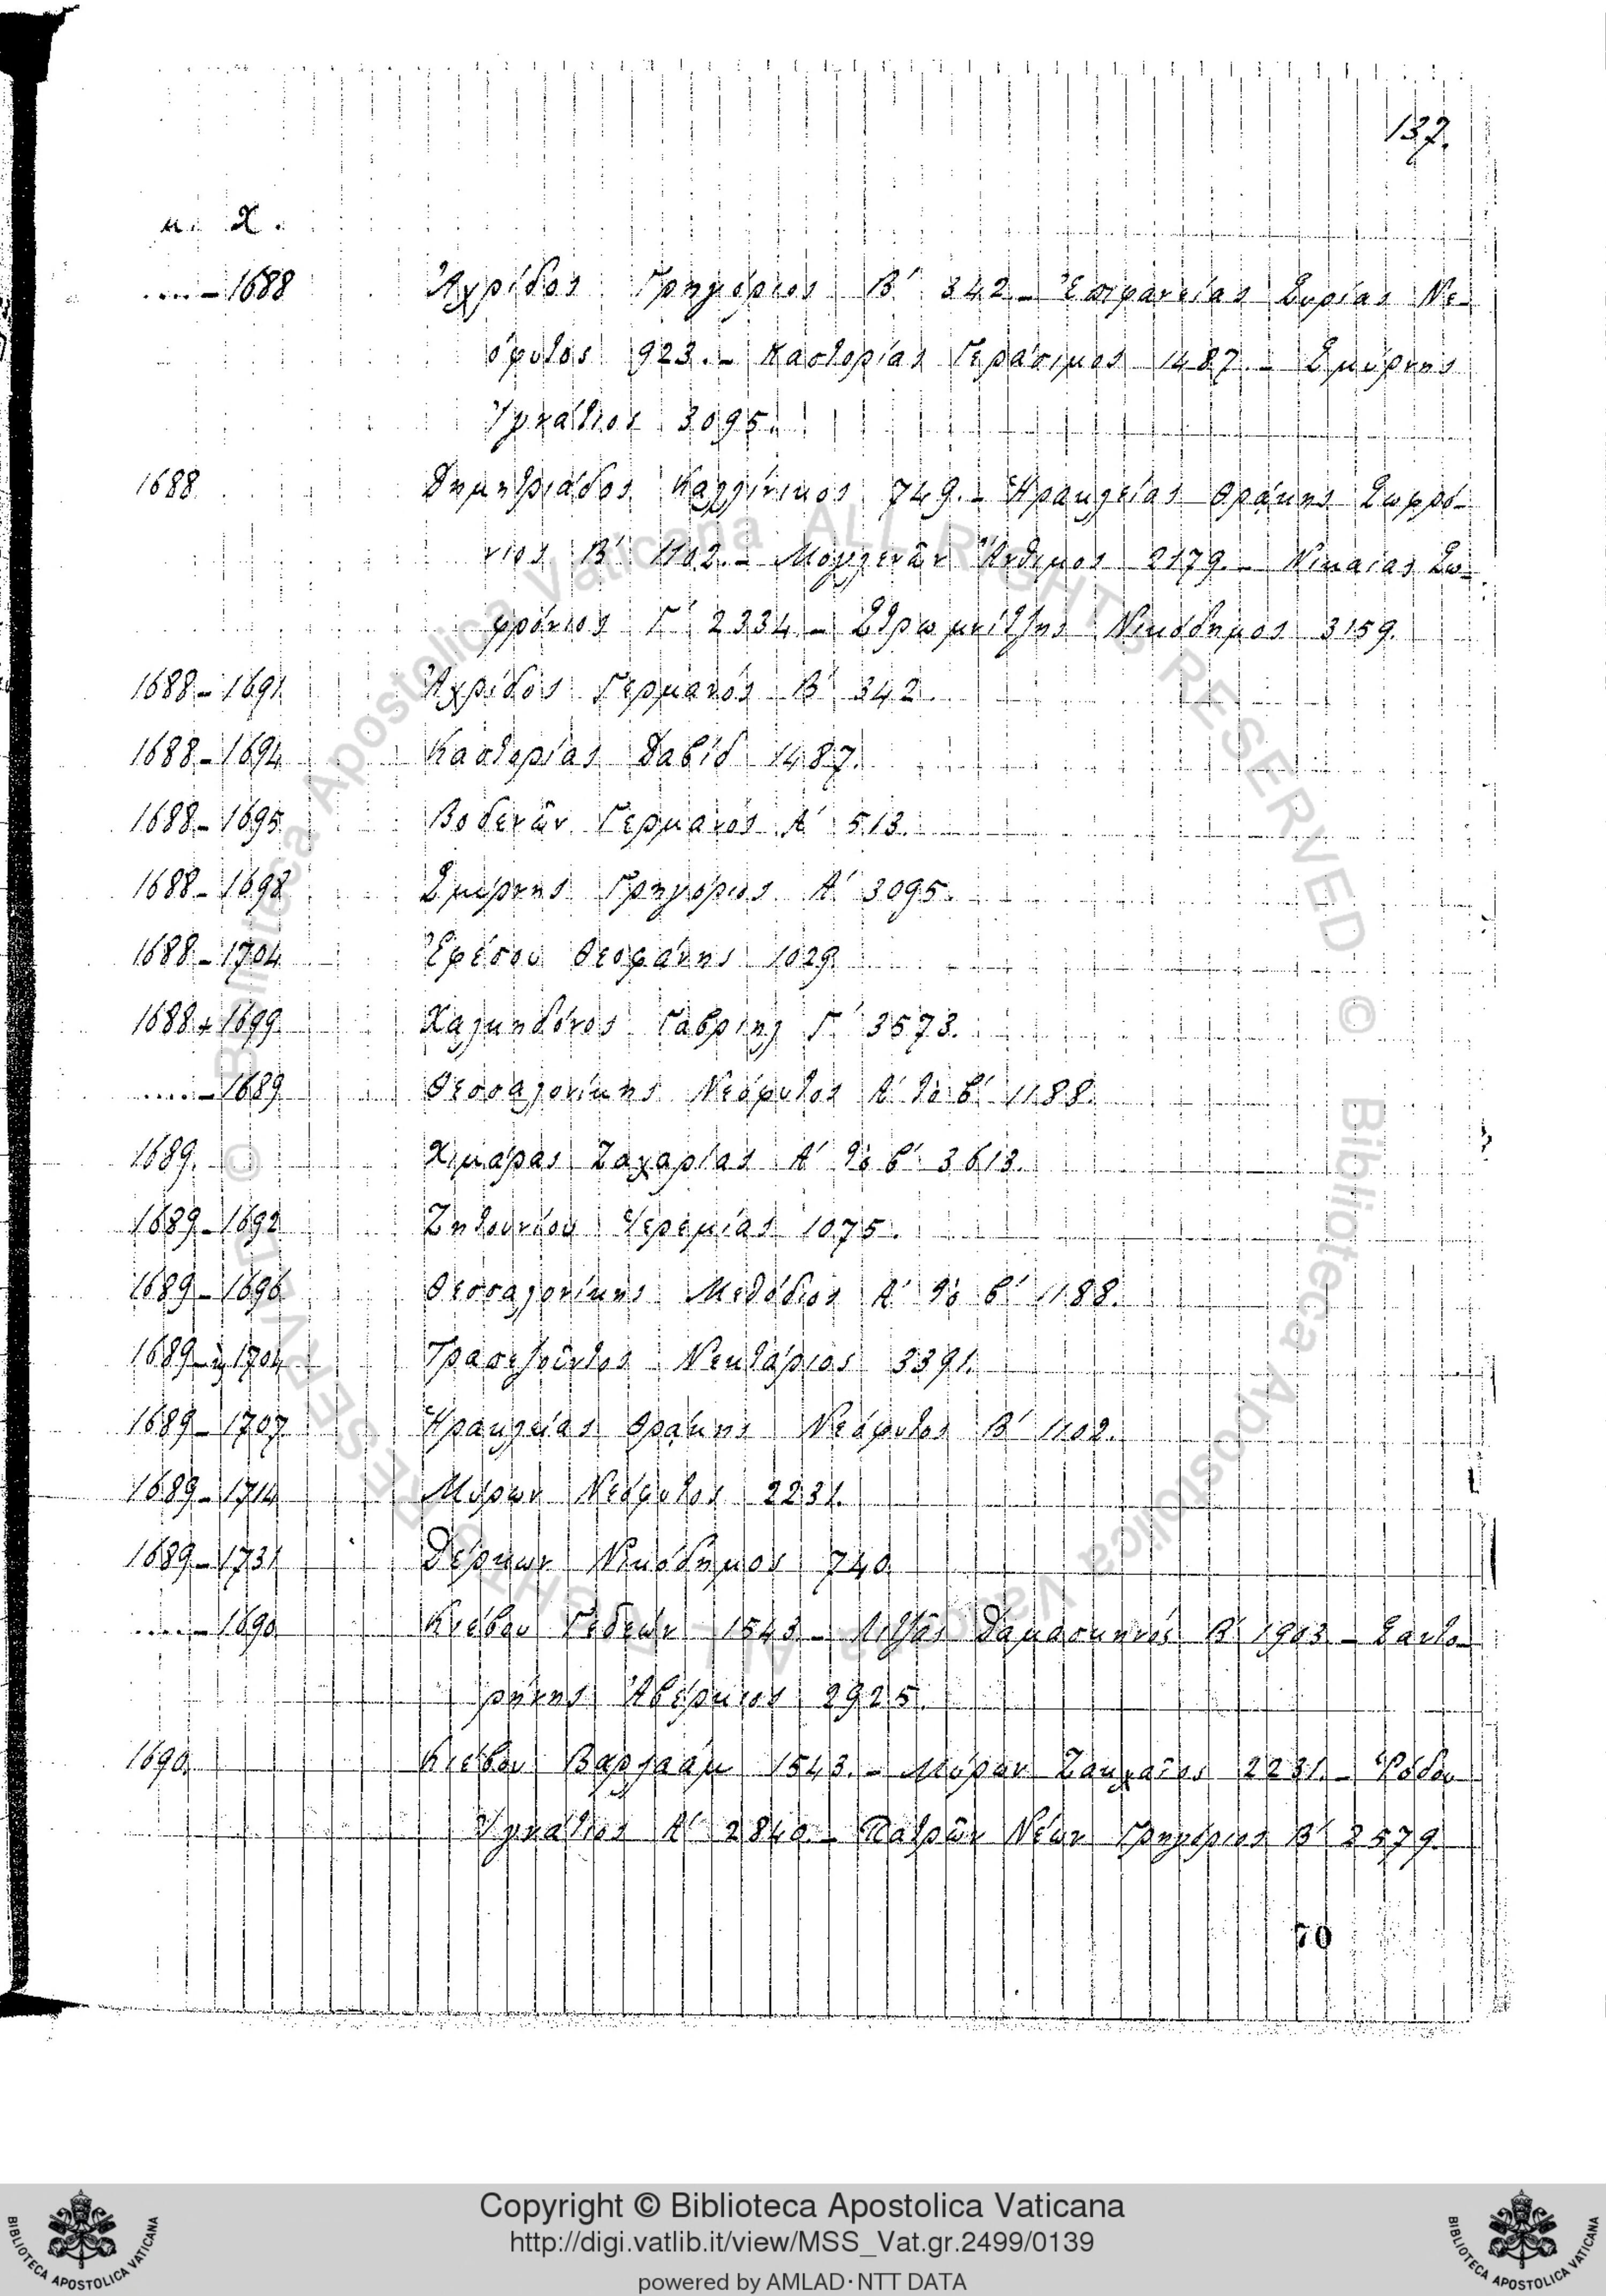 137.
μ. Χ.
....–1688 Ἀχρίδος Γρηγόριος Β′ 342 – Ἐπιφανείας Συρίας Νε-
όφυτος 923. – Καστορίας Γεράσιμος 1487. – Σμύρνης
Ἰγνάτιος 3095.
1688 Δημητριάδος Καλλίνικος 749. – Ἡρακλείας Θρᾴκης Σωφρό-
νιος Β′ 1102. – Μογλενῶν Ἄνθιμος 2179. – Νικαίας Σω-
φρόνιος Γ′ 2334 – Στρωμνίτζης Νικόδημος 3159.
1688–1691 Ἀχρίδος Γερμανός Β′ 342.
1688–1694 Καστορίας Δαβίδ 1487.
1688–1695 Βοδενῶν Γερμανός Α′ 513.
1688–1698 Σμύρνης Γρηγόριος Α′ 3095.
1688–1704 Ἐφέσου Θεοφάνης 1029
1688 + 1699 Χαλκηδόνος Γαβριήλ Γ′ 3573.
....–1689 Θεσσαλονίκης Νεόφυτος Α′ τὸ β′ 1188.
1689. Χιμάρας Ζαχαρίας Α′ τὸ β′ 3613.
1689–1692 Ζητουνίου Ἱερεμίας 1075.
1689–1696 Θεσσαλονίκης Μεθόδιος Α′ τὸ β′ 1188.
1689–ἢ 1704 Τραπεζοῦντος Νεκτάριος 3391.
1689–1707 Ἡρακλείας Θρᾴκης Νεόφυτος Β′ 1102.
1689–1714 Μύρων Νεόφυτος 2231.
1689–1731 Δέρκων Νικόδημος 740
....–1690 Κιέβου Γεδεών 1543 – Λιτζᾶς Δαμασκηνός Β′ 1903 – Σαντο-
ρήνης Ἀβέρκιος 2925.
1690. Κιέβου Βαρλαάμ 1543. – Μύρων Ζακχαῖος 2231. – Ῥόδου
Ἰγνάτιος Α′ 2840. – Πατρῶν Νέων Γρηγόριος Β′ 2579.
70
© Biblioteca Apostolica Vaticana ALL RIGHTS RESERVED © Biblioteca Apostolica Vaticana ALL RIGHTS RESERVED
Copyright © Biblioteca Apostolica Vaticana
http://digi.vatlib.it/view/MSS_Vat.gr.2499/0139
powered by AMLAD·NTT DATA
BIBLIOTECA APOSTOLICA VATICANA
BIBLIOTECA APOSTOLICA VATICANA